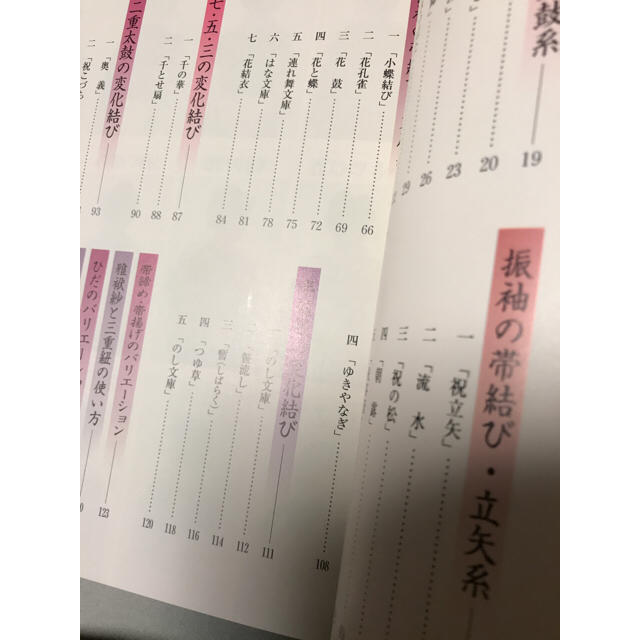 鼓系
19
20
23
26
29
振袖の帯結び・立矢系
一 「祝立矢」
二 「流水」
三 「祝の松」
四
一 「小蝶結び」 66
二 「花孔雀」 69
三 「花鼓」 72
四 「花と蝶」 75
五 「連れ舞文庫」 78
六 「はな文庫」 81
七 「花結衣」 84
七・五・三の変化結び
一 「千の華」 87
二 「千とせ扇」 88
二重太鼓の変化結び 90
一 「奥義」 93
二 「祝こづち
四 「ゆきやなぎ」 108
変化結び 111
一 「のし文庫」 112
二 「笹流し」 114
三 「暫(しばらく)」 116
四 「つゆ草」 118
五 「のし文庫」
帯締め・帯揚げのバリエーション 120
雅袱紗と三重紐の使い方 123
ひだのバリエーション